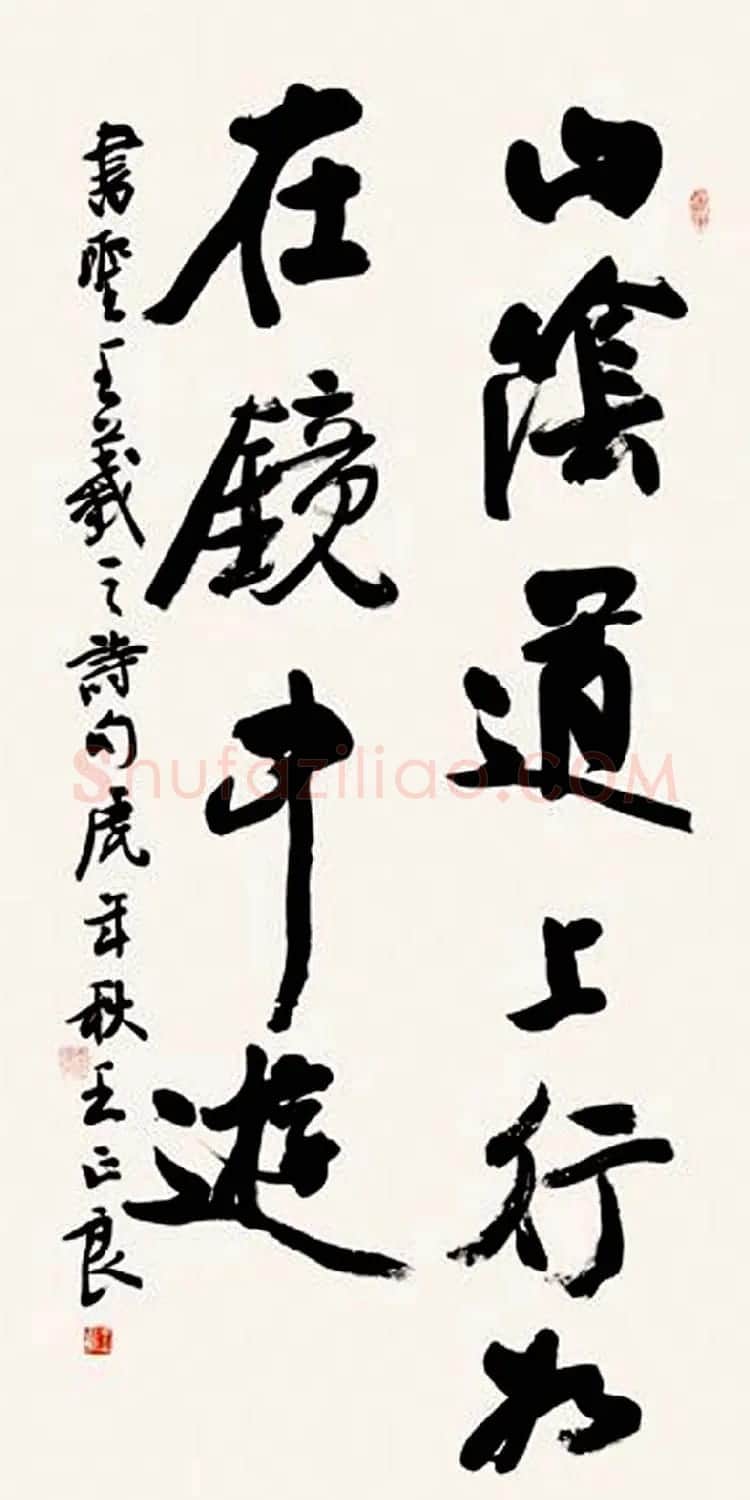 山陰道上行如
在鏡中遊
書聖王羲之詩句虎年秋王正良
Shufaziliao.COM